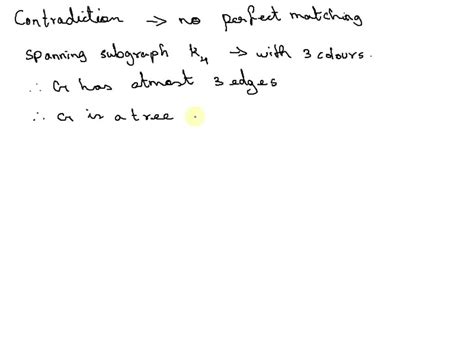 Contradiction → no perfect matching
spanning subgraph K4 → with 3 colours.
∴ G has atmost 3 edges
∴ G is a tree.